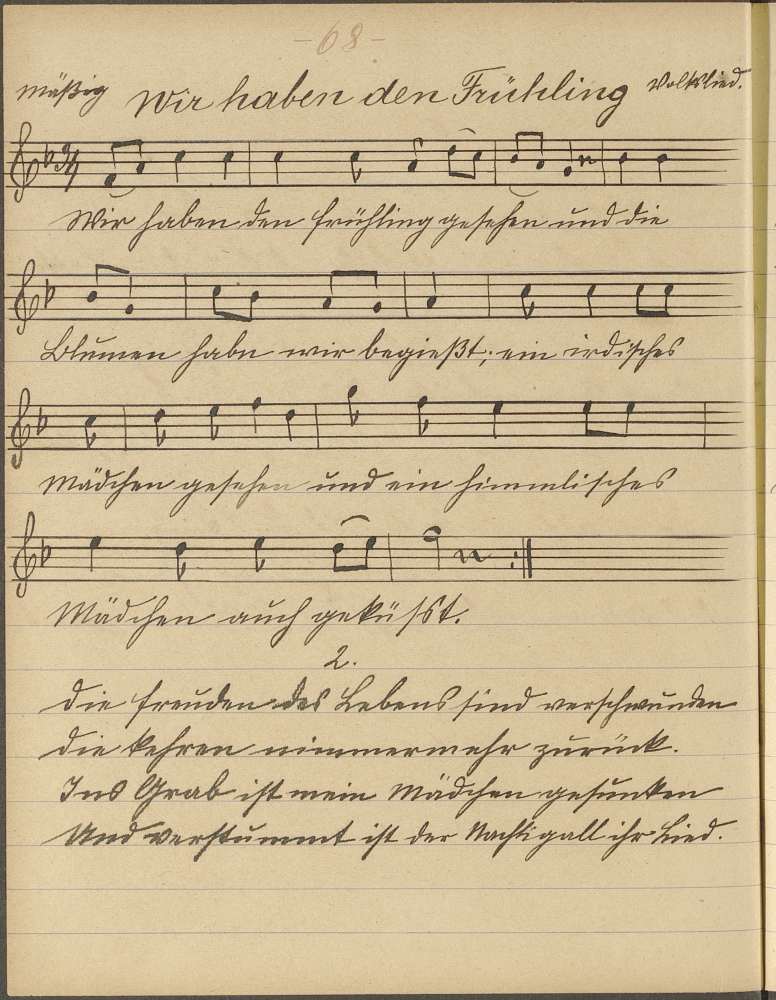 -68-
Mäßig Wir haben den Frühling Volkslied.
Wir haben den Frühling gesehen und die
Blumen habn wir begießt; ein irdisches
Mädchen gesehen und ein himmlisches
Mädchen auch geküsst.
2.
Die Freuden des Lebens sind verschwunden
Die kehren nimmermehr zurück.
Ins Grab ist mein Mädchen gesunken
Und verstummt ist der Nachtigall ihr Lied.